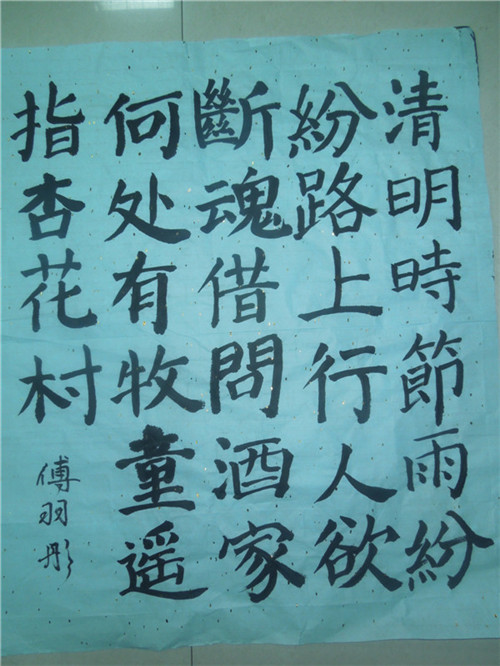 清明時節雨紛
紛路上行人欲
斷魂借問酒家
何处有牧童遥
指杏花村
傅羽彤